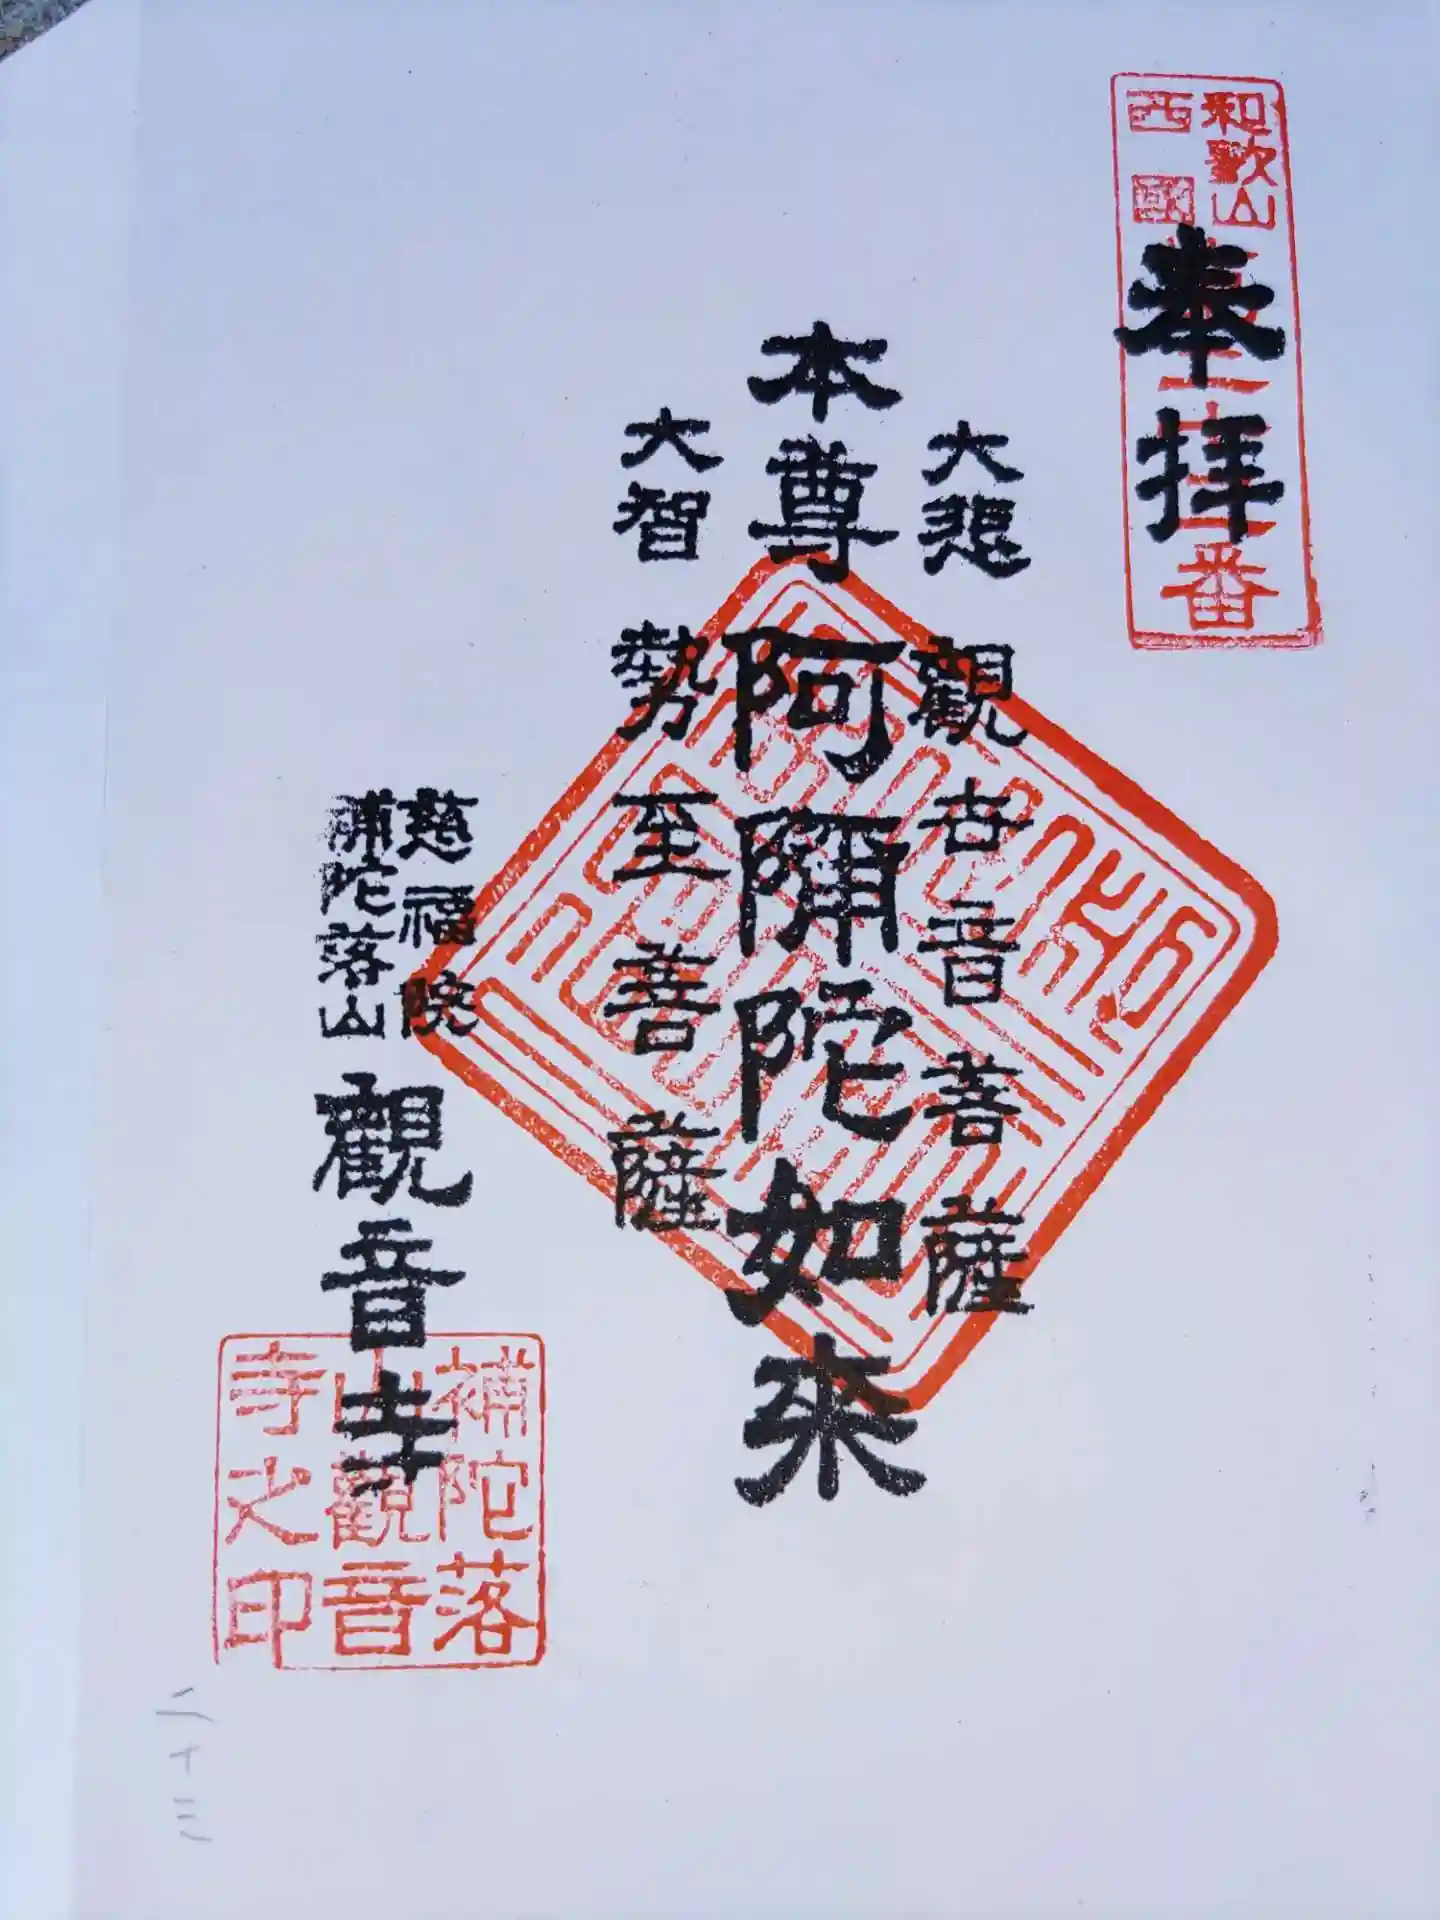 和歌山
西國
第二十三番
奉拝
大悲 觀世音菩薩
本尊 阿彌陀如来
大智 勢至菩薩
慈福院
補陀落山
觀音寺
補陀落
山觀音
寺之印
二十三